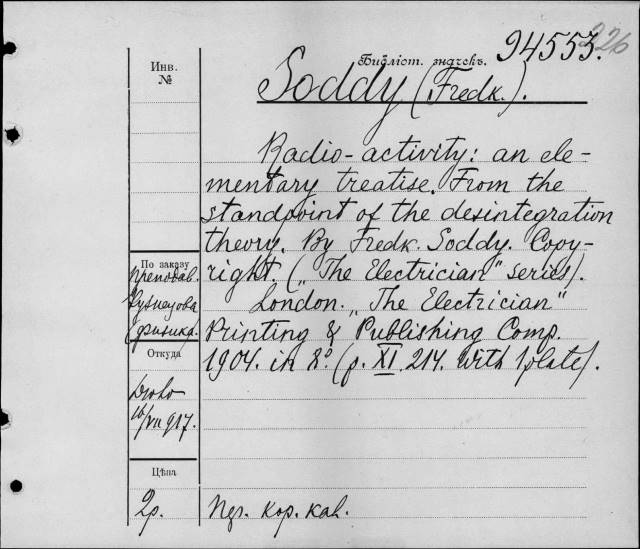 94553.
226
Библіот. значекъ.
Инв.
№
Soddy (Fredk.).
Radio-activity: an ele-
mentary treatise. From the
standpoint of the desintegration
theory. By Fredk. Soddy. Copy-
right. („The Electrician" series).
London. „The Electrician"
Printing & Publishing Comp.
1904. in 8º. (p. XI. 214. With 1 plate).
По заказу
преподав.
Кузнецова
(физика.
Откуда
16/VII 917.
Цѣна
2р.
кор. каб.